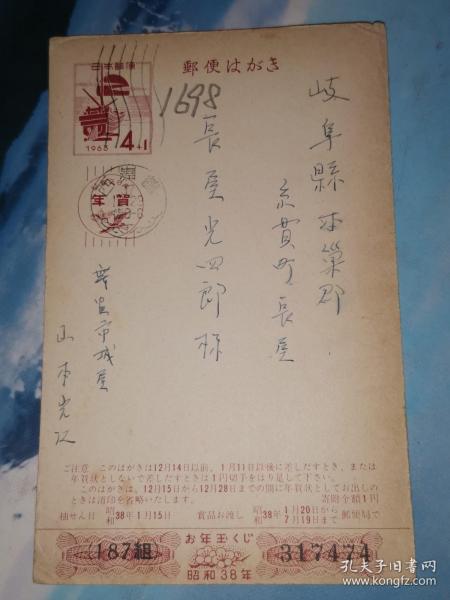 日本郵便
郵便はがき
4+1
1963
年賀
1698
岐阜縣本巣郡
糸貫町長屋
長屋光四郎様
市城屋
山本光
ご注意 このはがきは12月14日以前、1月11日以後に差しだすとき、または
年賀状としないで差しだすときは1円切手をはり足して下さい。
このはがきは、12月15日から12月28日までの間に年賀状としてお出しの
ときは消印を省略いたします。 寄附金額1円
抽せん日 昭和38年1月15日 賞品お渡し 昭和38年 1月20日から 7月19日まで 郵便局で
お年玉くじ
187組
317474
昭和38年
孔夫子旧书网